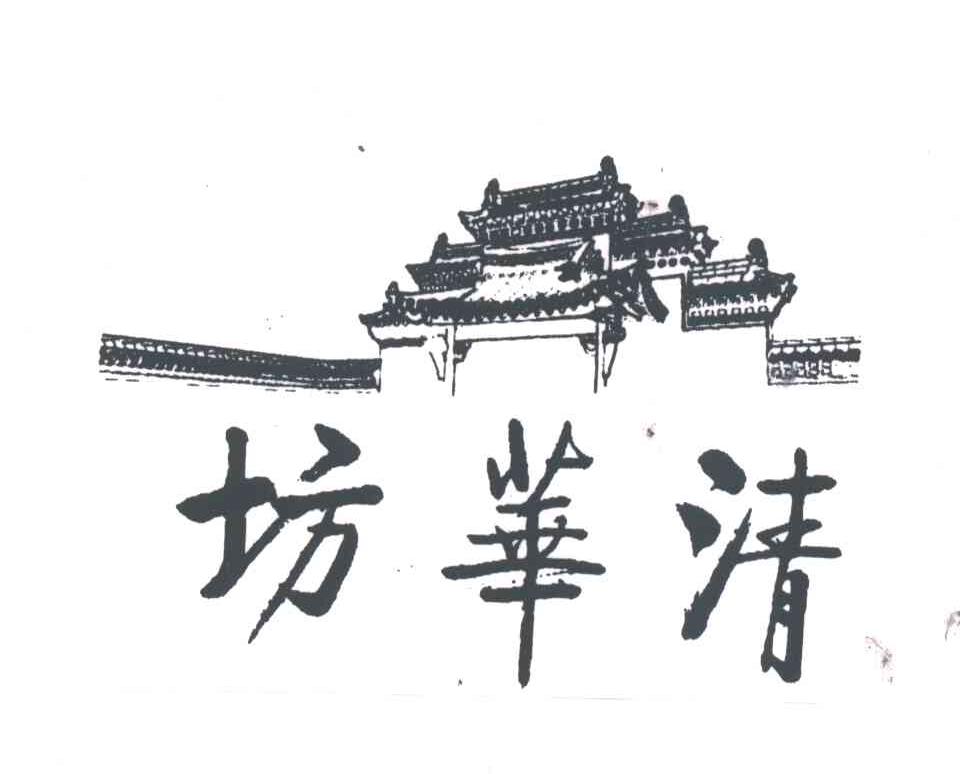 清華坊